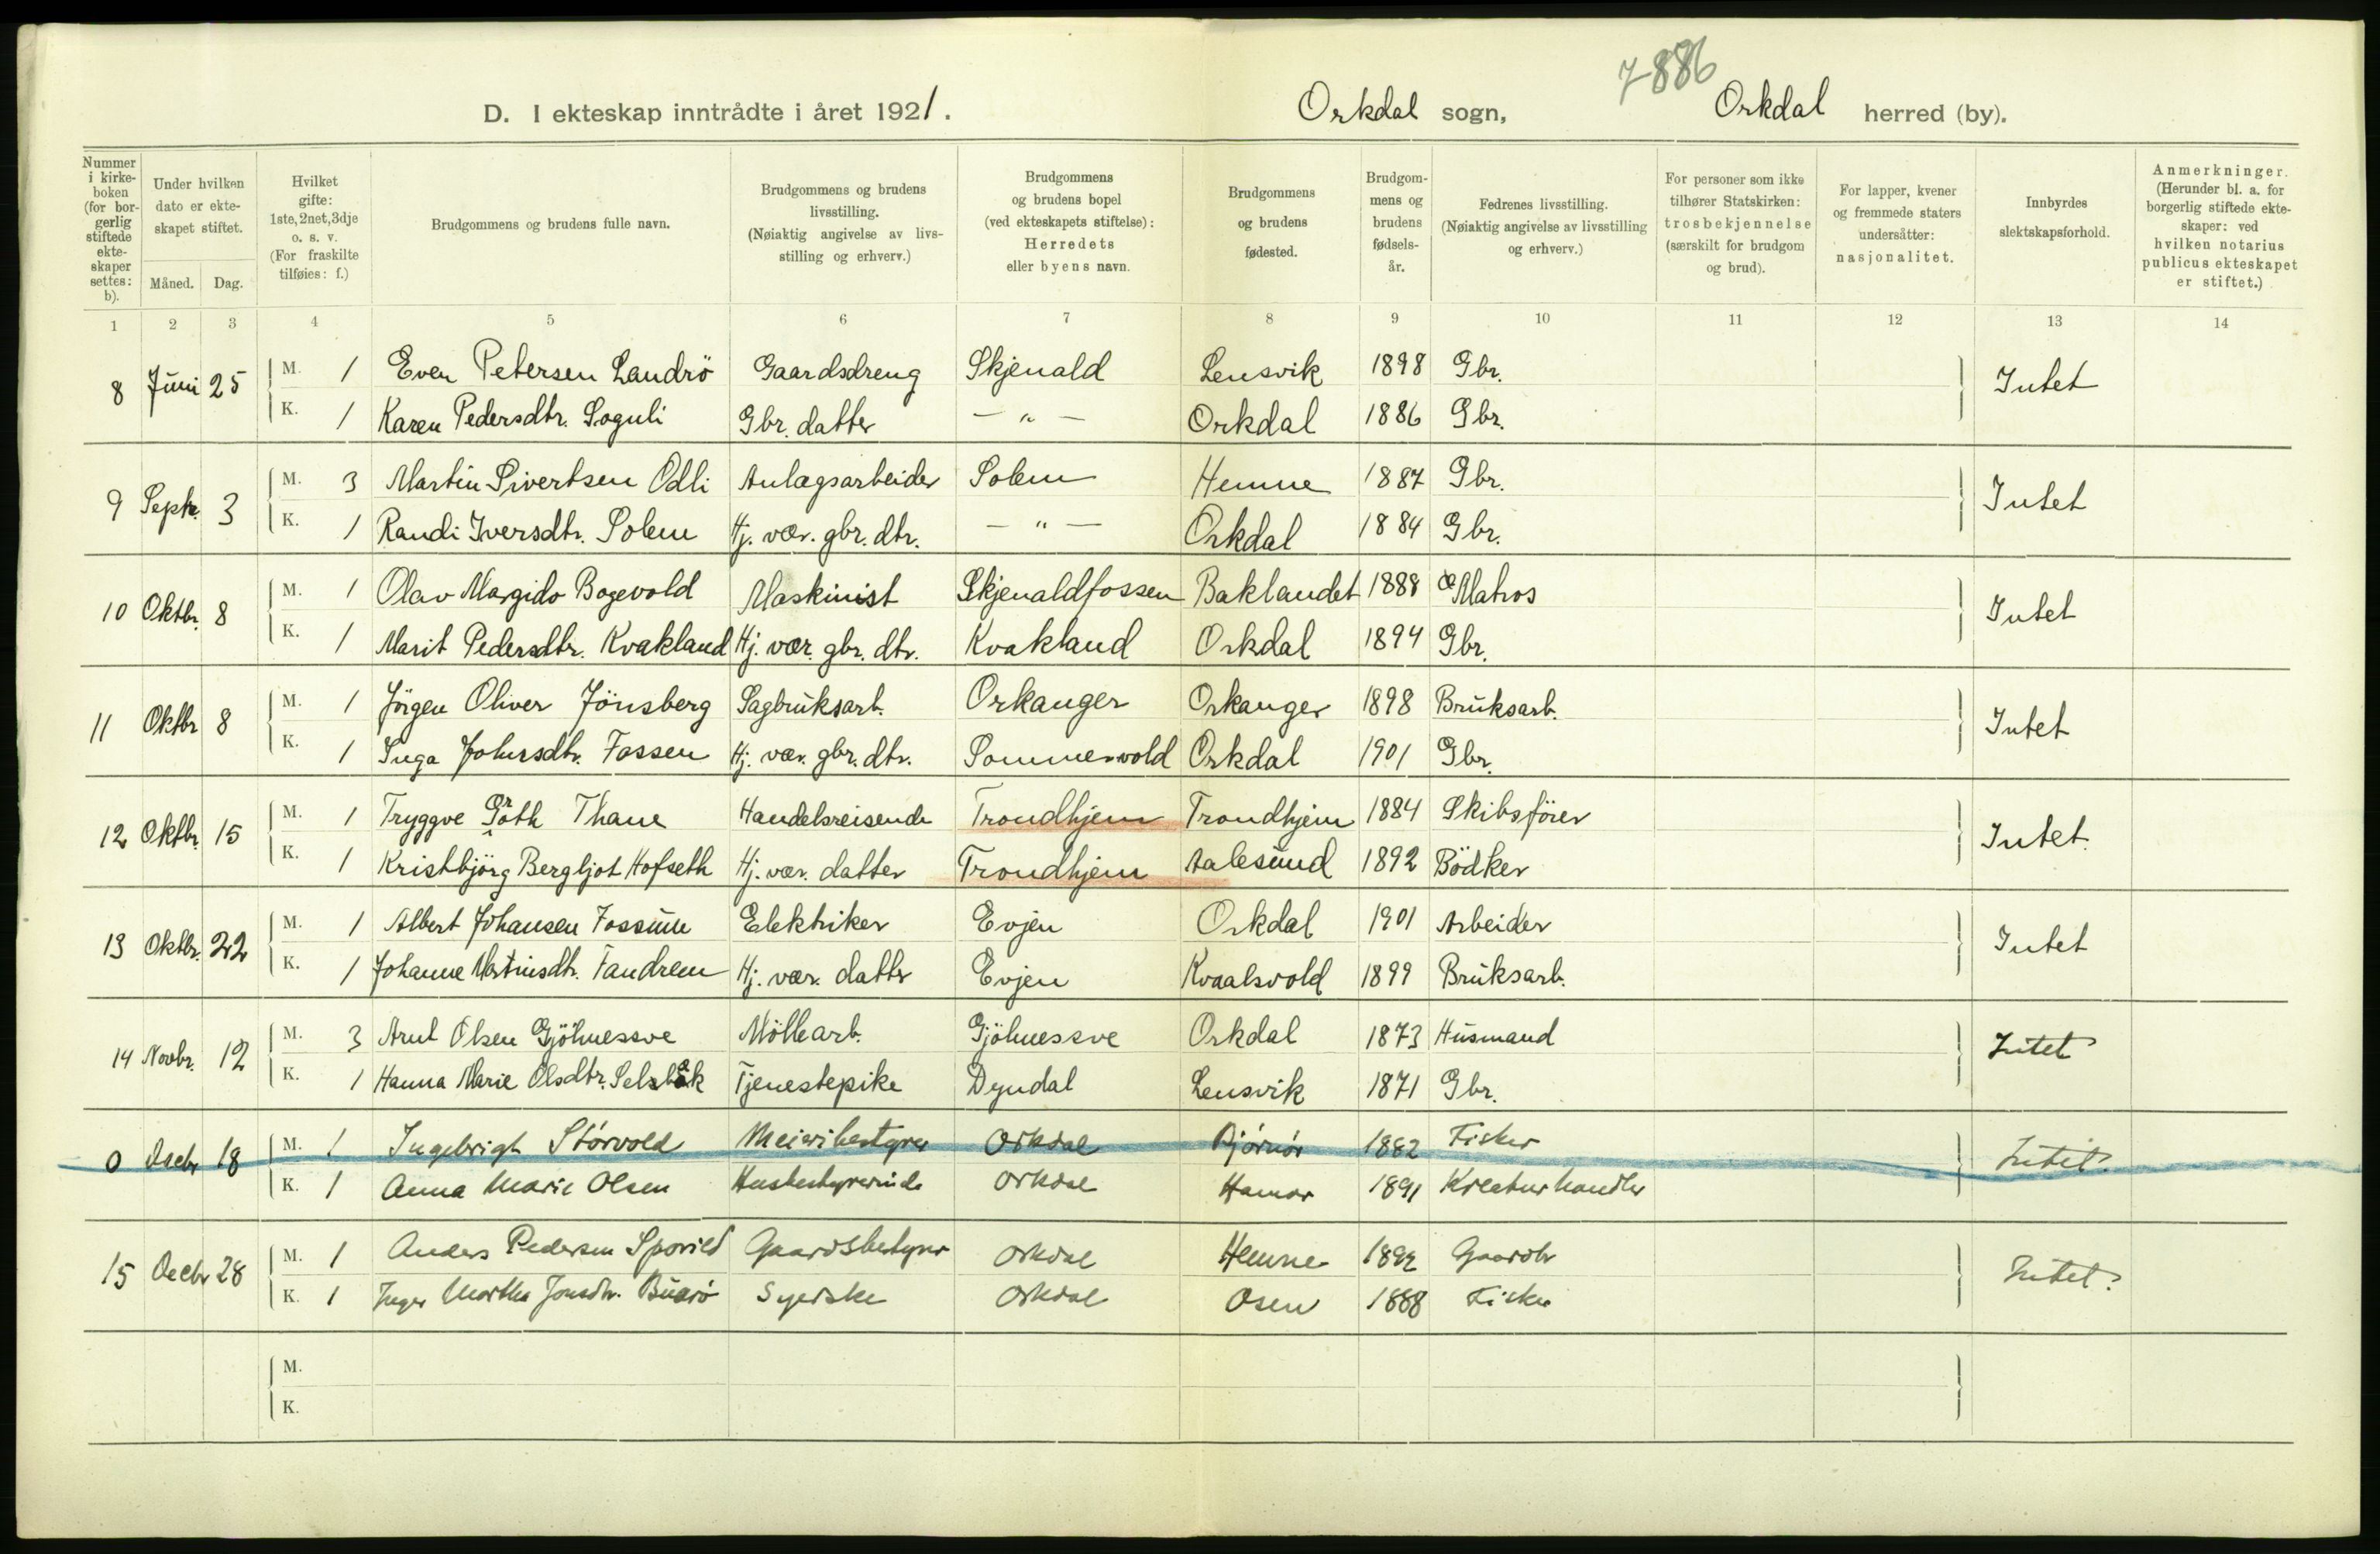 7886
D. I ekteskap inntrådte i året 1921. Orkdal sogn, Orkdal herred (by).
Nummer i kirkeboken (for borgerlig stiftede ekteskaper settes: b).
Under hvilken dato er ekteskapet stiftet.
Måned. Dag.
Hvilket gifte: 1ste, 2net, 3dje o. s. v. (For fraskilte tilføies: f.)
Brudgommens og brudens fulle navn.
Brudgommens og brudens livsstilling. (Nøiaktig angivelse av livsstilling og erhverv.)
Brudgommens og brudens bopel (ved ekteskapets stiftelse): Herredets eller byens navn.
Brudgommens og brudens fødested.
Brudgommens og brudens fødselsår.
Fedrenes livsstilling. (Nøiaktig angivelse av livsstilling og erhverv.)
For personer som ikke tilhører Statskirken: trosbekjennelse (særskilt for brudgom og brud).
For lapper, kvener og fremmede staters undersåtter: nasjonalitet.
Innbyrdes slektskapsforhold.
Anmerkninger. (Herunder bl. a. for borgerlig stiftede ekteskaper: ved hvilken notarius publicus ekteskapet er stiftet.)
1 2 3 4 5 6 7 8 9 10 11 12 13 14
8 Juni 25 M. 1 Even Petersen Landrö Gaardsdreng Skjenald Lensvik 1898 Gbr. Intet
K. 1 Karen Pedersdtr. Soguli Gbr. datter — " — Orkdal 1886 Gbr.
9 Septr. 3 M. 3 Martin Sivertsen Odli Anlægsarbeider Solem Hemne 1887 Gbr. Intet
K. 1 Randi Iversdtr. Solem Hj. vær. gbr. dtr. — " — Orkdal 1884 Gbr.
10 Oktbr. 8 M. 1 Olav Margido Bogevold Maskinist Skjenaldfossen Baklandet 1888 Matros Intet
K. 1 Marit Pedersdtr. Kvakland Hj. vær. gbr. dtr. Kvakland Orkdal 1894 Gbr.
11 Oktbr 8 M. 1 Jörgen Oliver Jönsberg Sagbruksarb. Orkanger Orkanger 1898 Bruksarb. Intet
K. 1 Inga Johnsdtr. Fossen Hj. vær. gbr. dtr. Sommervold Orkdal 1901 Gbr.
12 Oktbr. 15 M. 1 Tryggve Thane Handelsreisende Trondhjem Trondhjem 1884 Skibsförer Intet.
K. 1 Kristbjörg Bergljot Hofseth Hj. vær. datter Trondhjem Aalesund 1892 Bödker
13 Oktbr. 22 M. 1 Albert Johansen Fossum Elektriker Evjen Orkdal 1901 Arbeider Intet
K. 1 Johanne Martinsdtr. Fandrem Hj. vær. datter Evjen Kvaalsvold 1899 Bruksarb.
14 Novbr. 12 M. 3 Arnt Olsen Gjölmessve Möllearb. Gjölmessve Orkdal 1873 Husmand Intet
K. 1 Hanna Marie Olsdtr. Selsbæk Tjenestepike Dyndal Lensvik 1871 Gbr.
0 Decbr 18 M. 1 Ingebrigt Störvold Meieribestyrer Orkdal Bjørnör 1882 Fisker Intet.
K. 1 Anna Marie Olsen Husbestyrerinde Orkdal Hamar 1891 Kreaturhandler
15 Decbr 28 M. 1 Anders Pedersen Sporild Gaardsbestyrer Orkdal Hemne 1892 Gaardbr Intet.
K. 1 Inger Martha Jonsdtr. Buarö Syerske Orkdal Osen 1888 Fisker
M.
K.